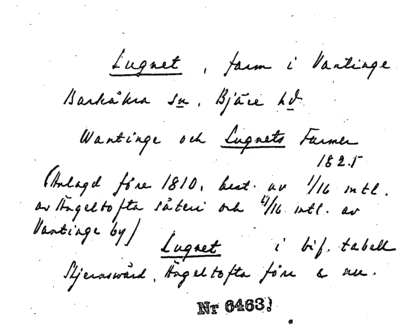 Lugnet, farm i Vantinge
Barkåkra sn, Bjäre hd.
Wantinge och Lugnets Farmer
1825
(Anlagd före 1810, best. av 1/16 mtl.
av Ängeltofta säteri och 4/16 mtl. av
Vantinge by)
Lugnet i bif. tabell
Stjernswärd, Ängeltofta förr o nu.
Nr 6463)